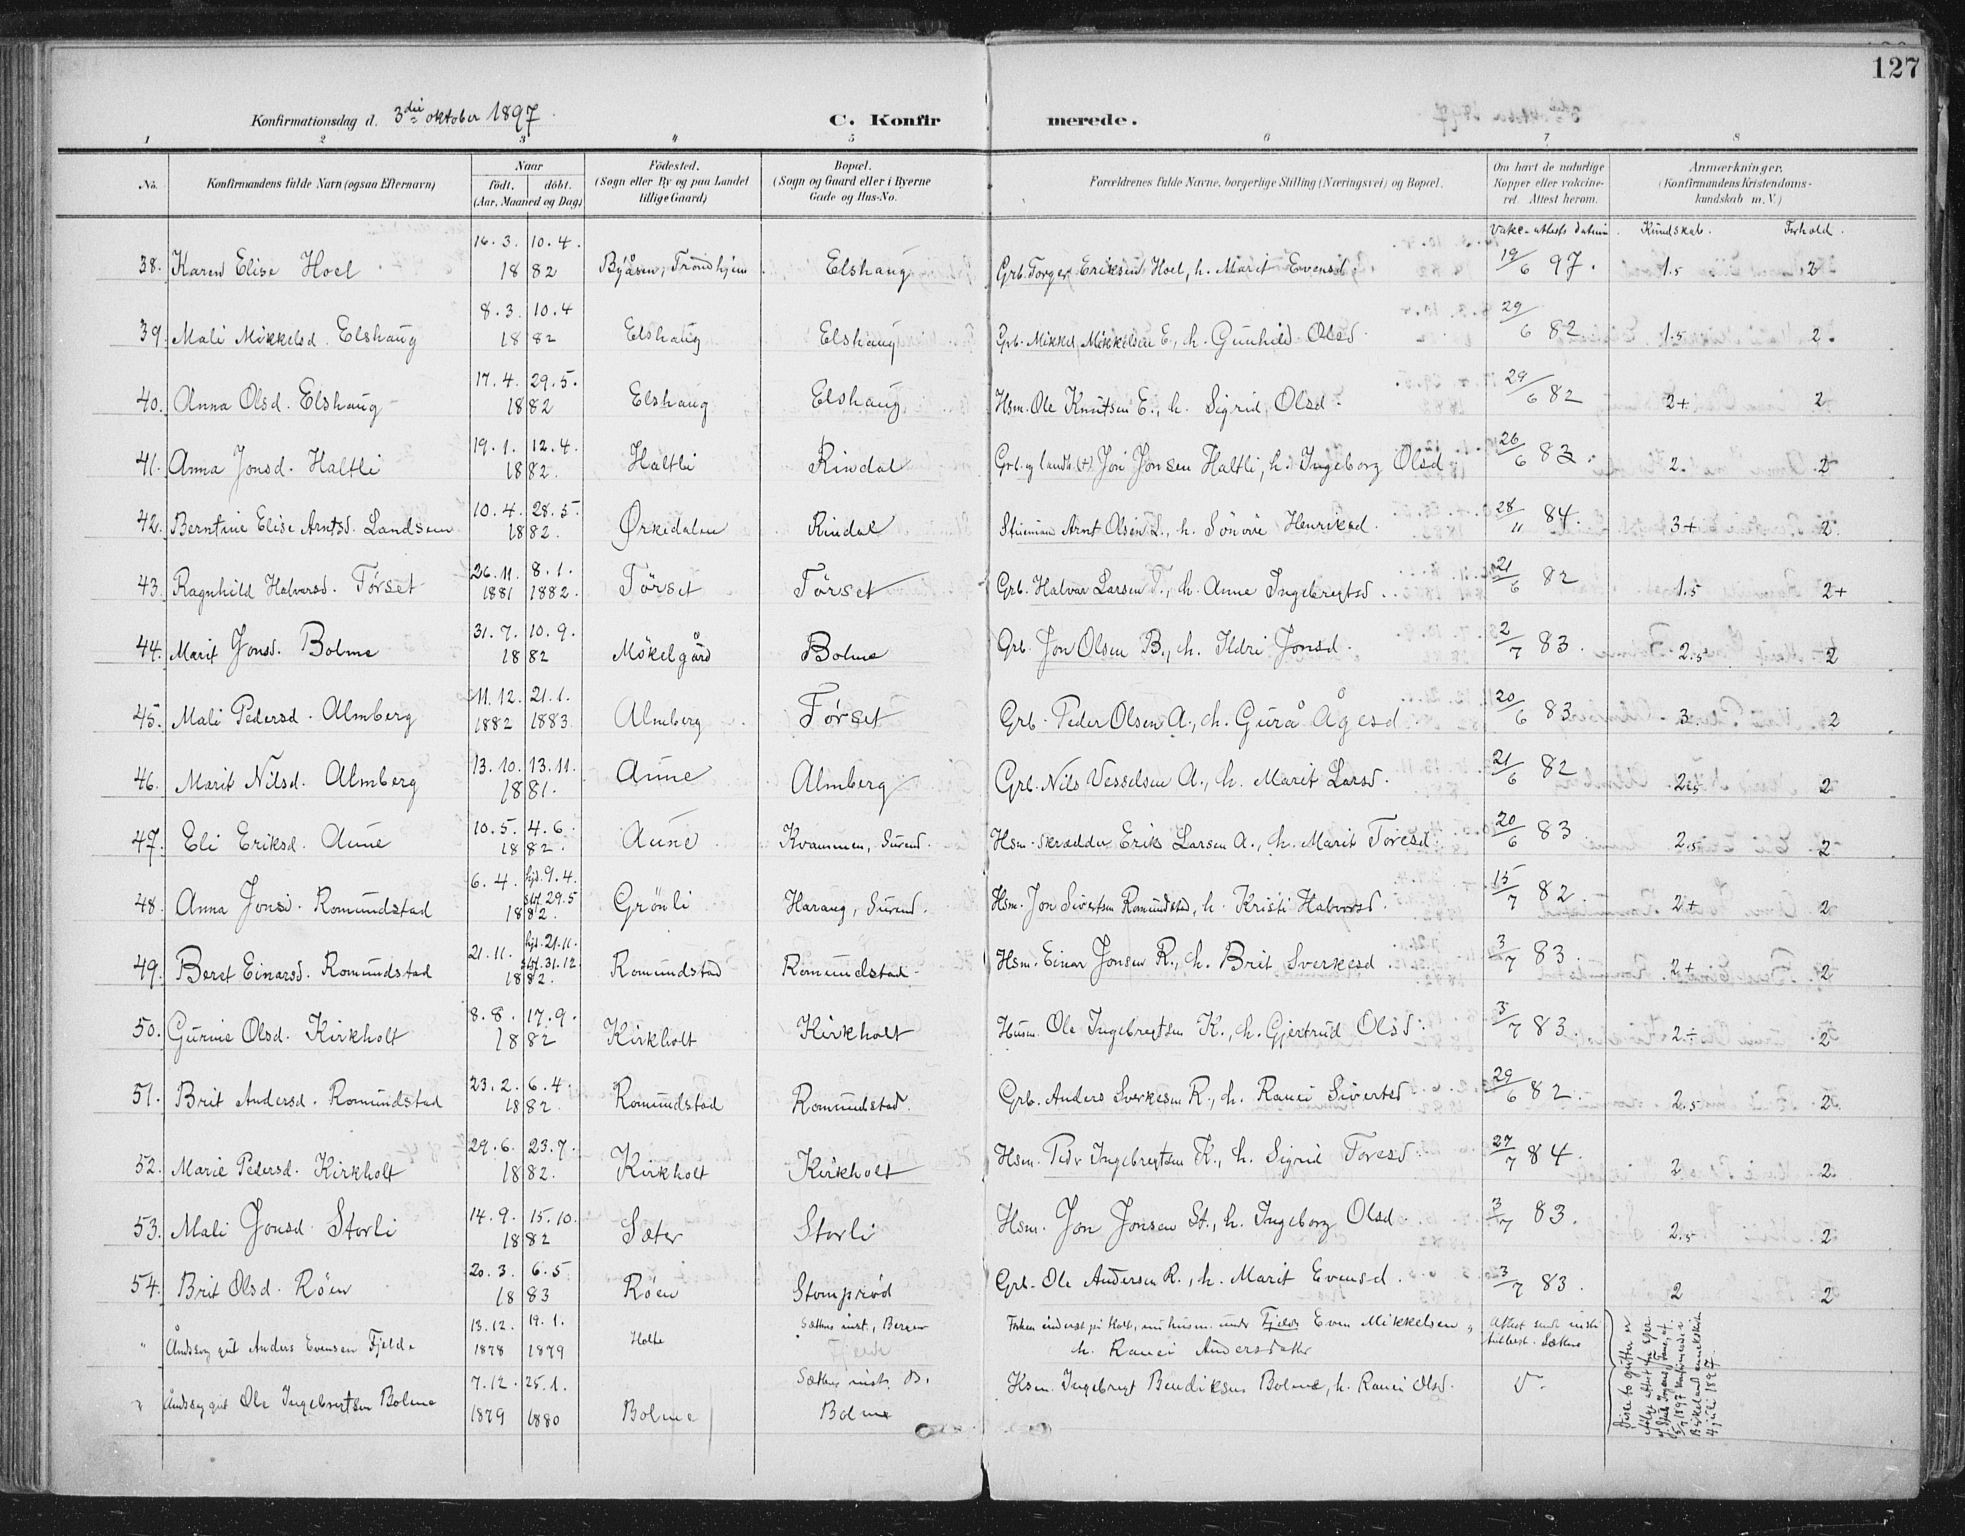 127
Konfirmationsdag d. 3die oktober 1897. C. Konfirmerede.
1 2 3 4 5 6 7 8
No. Konfirmandens fulde Navn (ogsaa Efternavn) Naar födt. döbt. (Aar, Maaned og Dag) Födested. (Sogn eller By og paa Landet tillige Gaard) Bopæl. (Sogn og Gaard eller i Byerne Gade og Hus-No. Forældrenes fulde Navne, borgerlige Stilling (Næringsvei) og Bopæl. Om havt de naturlige Kopper eller vakcineret. Attest herom. Anmærkninger. (Konfirmandens Kristendomskundskab m. V.)
Vakc.-attests datum. Kundskab. Forhold.
38. Karen Elise Hoel 16.3. 10.4. 1882 Byåsen, Trondhjem Elshaug Grb. Torger Eriksen Hoel, h. Marit Evensd. 19/6 97. 1.5 2
39. Mali Mikkelsd. Elshaug 8.3. 10.4 1882 Elshaug Elshaug Grb. Mikkel Mikkelsen E., h. Gunhild Olsd. 29/6 82. 1.5 2.
40. Anna Olsd. Elshaug 17.4. 29.5. 1882 Elshaug Elshaug Hsm. Ole Knutsen E., h. Sigrid Olsd. 29/6 82 2+ 2
41. Anna Jonsd. Haltli 19.1. 12.4. 1882. Haltli Rindal Grb. og landh. (+) Jon Jonsen Haltli, h. Ingeborg Olsd 26/6 83. 2. 2
42. Berntine Elise Arntsd. Landsem 10.4. 28.5. 1882. Ørkedalen Rindal Stuemand Arnt Olsen L., h. Sönöve Henriksd. 28/11 84. 3+ 2.
43. Ragnhild Halvorsd. Tørset 26.11. 1881 8.1. 1882. Törset Törset Grb. Halvar Larsen T., h. Anne Ingebregtsd. 21/6 82 1.5 2+
44. Marit Jonsd. Bolme 31.7. 10.9. 1882 Mökelgård Bolme Grb. Jon Olsen B., h. Ildri Jonsd. 2/7 83. 2.5 2
45. Mali Pedersd. Almberg 11.12. 1882 21.1. 1883. Almberg Tørset Grb. Peder Olsen A., h. Gurå Ågesd 20/6 83 3. 2
46. Marit Nilsd. Almberg 13.10. 13.11. 1881. Aune Almberg Grb. Nils Vesselsen A., h. Marit Larsd. 21/6 82 2.5 2
47. Eli Eriksd. Aune 10.5. 4.6. 1882. Aune Kvammen, Surend. Hsm. skrædder Erik Larsen A., h. Marit Toresd. 20/6 83. 2.5 2
48. Anna Jonsd. Romundstad 6.4. hjd. 9.4. stf. 29.5 1882. Grönli Harang, Surend. Hsm. Jon Sivertsen Romundstad, h. Kristi Halvorsd. 15/7 82. 2+ 2
49. Beret Einarsd. Romundstad 21.11. hjd. 21.11. stf. 31.12. 1882. Romundstad Romundstad Hsm. Einar Jonsen R., h. Brit Sverkesd 3/7 83. 2+ 2
50. Gurine Olsd. Kirkholt 8.8. 17.9. 1882 Kirkholt Kirkholt Husm. Ole Ingebregtsen K., h. Gjertrud Olsd. 3/7 83. 2÷ 2
51. Brit Andersd. Romundstad 23.2. 6.4. 1882. Romundstad Romundstad. Grb. Anders Sverkesen R., h. Ranei Sivertsd 29/6 82. 2.5 2
52. Marie Pedersd. Kirkholt 29.6. 23.7. 1882. Kirkholt Kirkholt Hsm. Peder Ingebregtsen K., h. Sigrid Toresd. 27/7 84. 2 2
53. Mali Jonsd. Storli 14.9. 15.10. 1882 Sæter Storli Hsm. Jon Jonsen St., h. Ingeborg Olsd 3/7 83. 2.5 2
54. Brit Olsd. Röen 20.3. 6.5 1883 Röen Stomprød Grb. Ole Andersen R., h. Marit Evensd. 3/7 83. 2 2
" Åndssvg gut Anders Evensen Fjelde 13.12. 1878 19.1. 1879 Holte Sæthres inst., Bergen Fjelde Even Mikkelsen, h. Ranei Andersdatter Attest sendt
" Åndssvg gut Ole Ingebrigtsen Bolme 7.12. 1879 25.1. 1880 Bolme Sæthres inst. B. Bolme Hsm. Ingebrigt Bendiksen Bolme, h. Ranei Olsd.
Disse to gutter er
4 juli 1897.